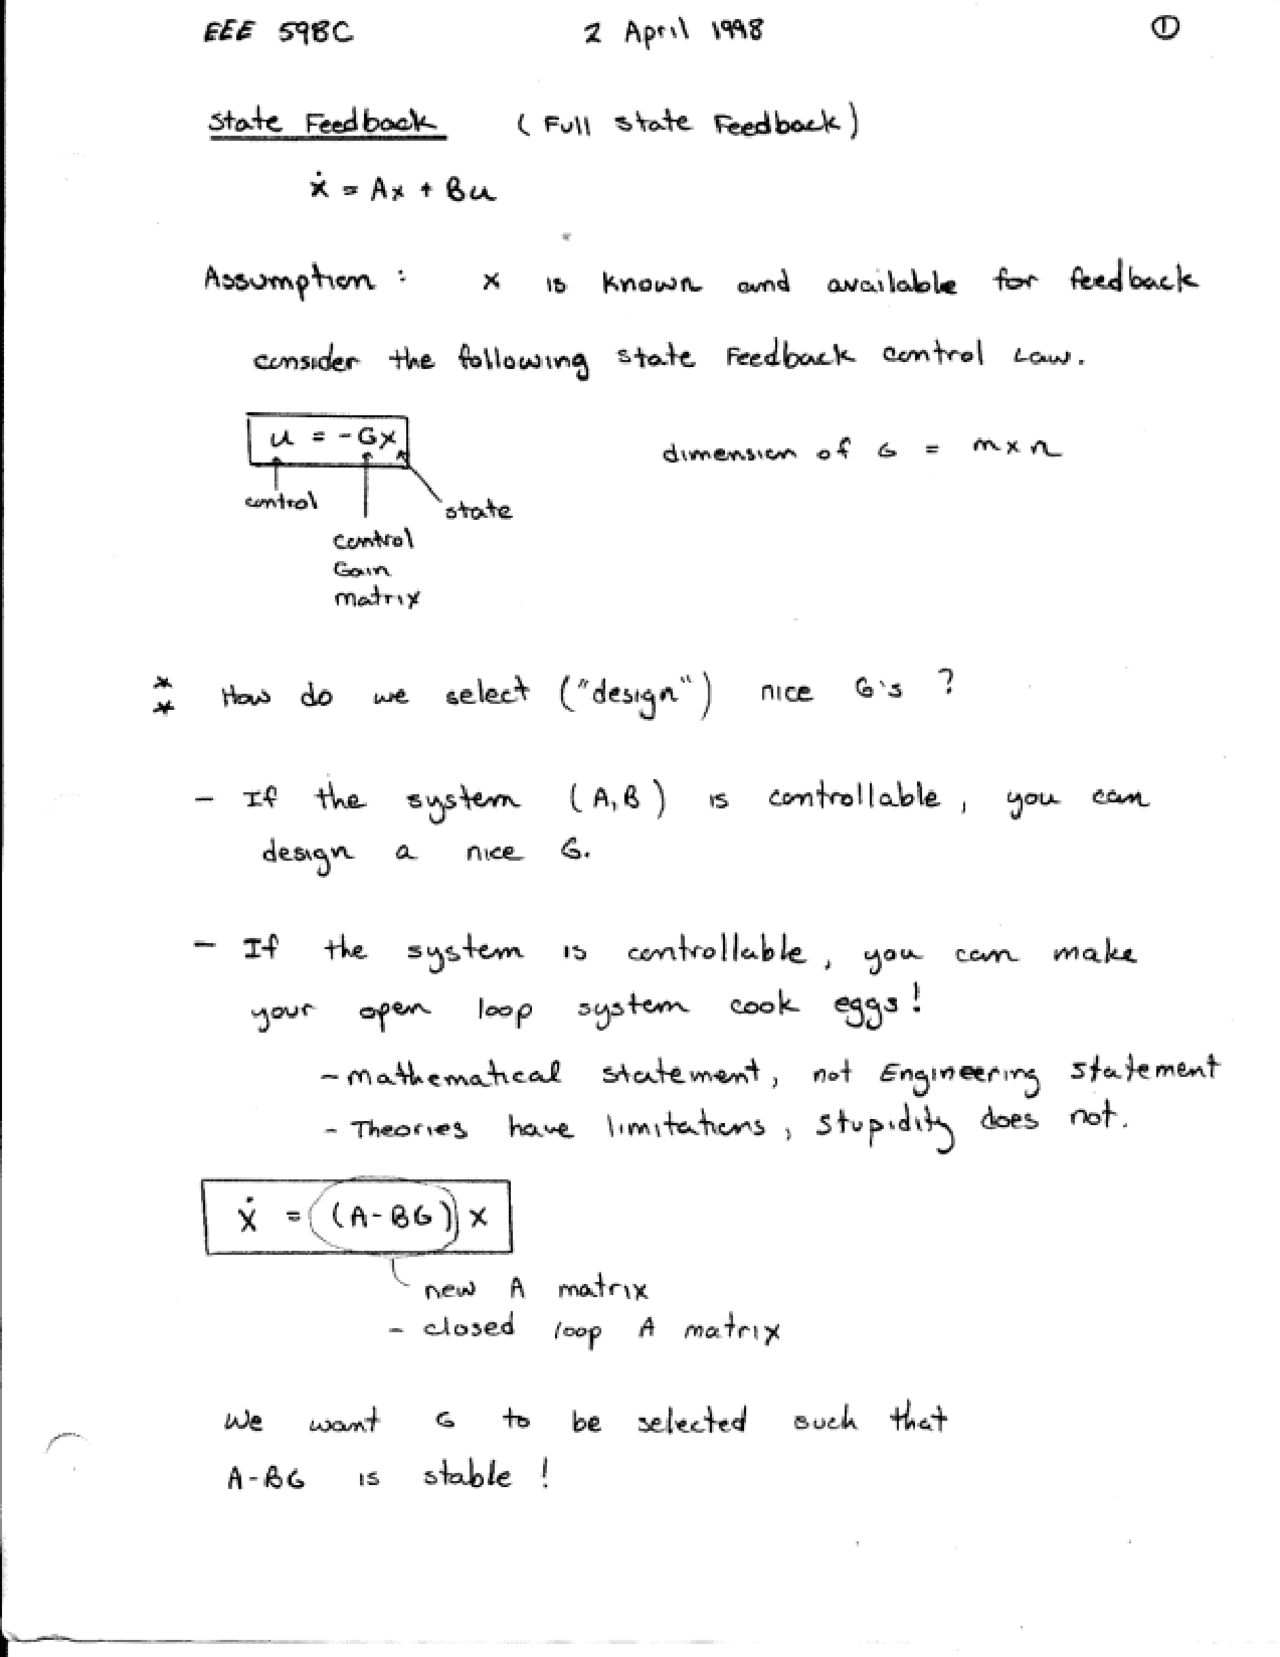 EEE 598C 2 April 1998 ①
State Feedback (Full State Feedback)
ẋ = Ax + Bu
Assumption : x is known and available for feedback
consider the following state Feedback control Law.
u = -Gx dimension of G = m x n
control state
control
Gain
matrix
* * How do we select ("design") nice G's ?
- If the system (A,B) is controllable, you can
design a nice G.
- If the system is controllable, you can make
your open loop system cook eggs!
- mathematical statement, not Engineering statement
- Theories have limitations, stupidity does not.
ẋ = (A-BG) x
new A matrix
- closed loop A matrix
We want G to be selected such that
A-BG is stable !